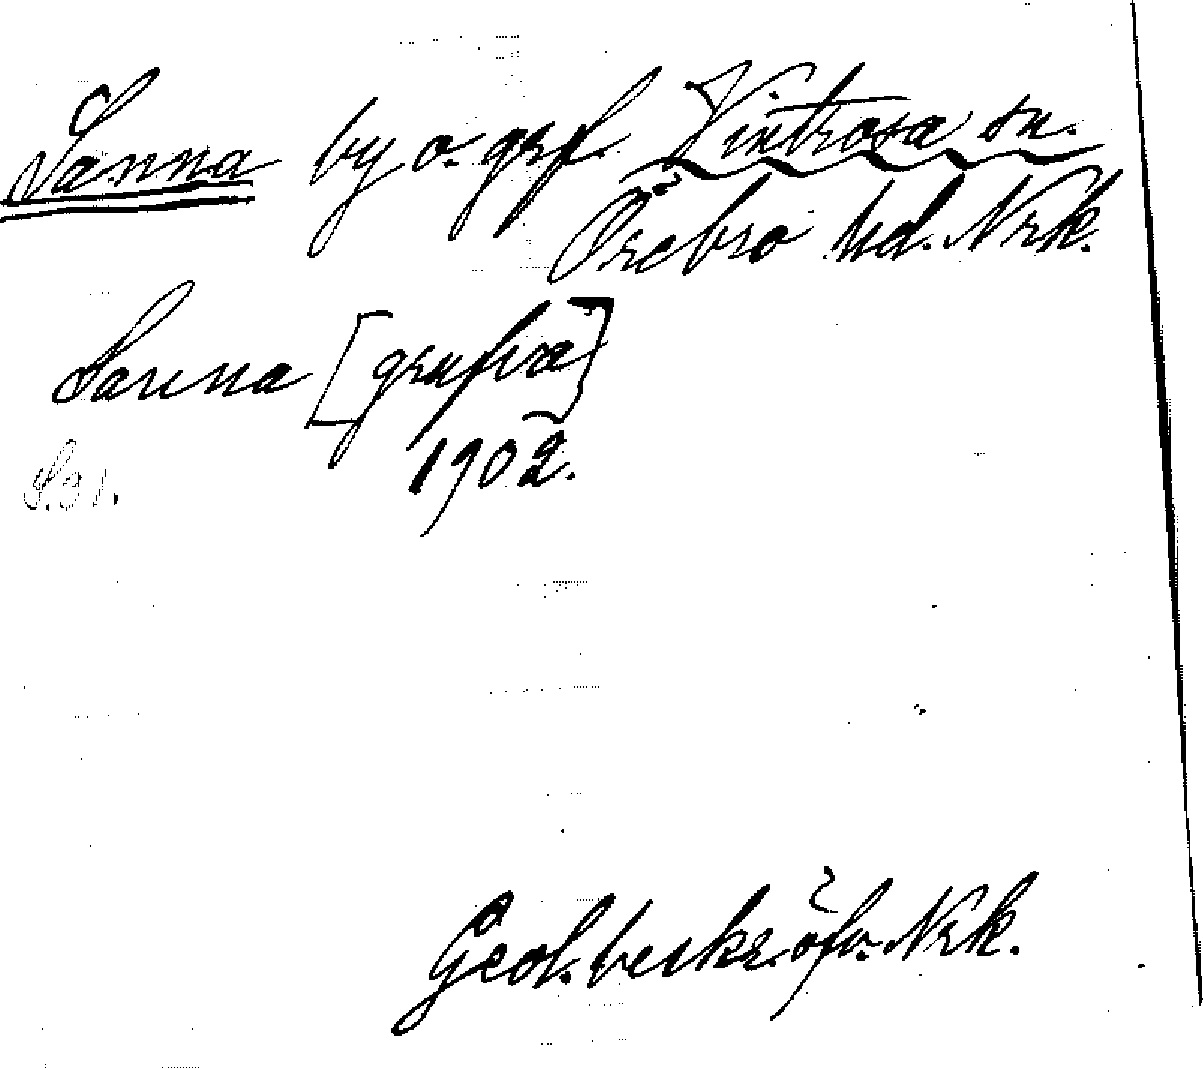 Sanna by o. grf. Vintrosa sn.
Örebro hd. Nrk.
Sanna [grufva]
1902.
S. 31.
Geol. beskr. öfv. Nrk.